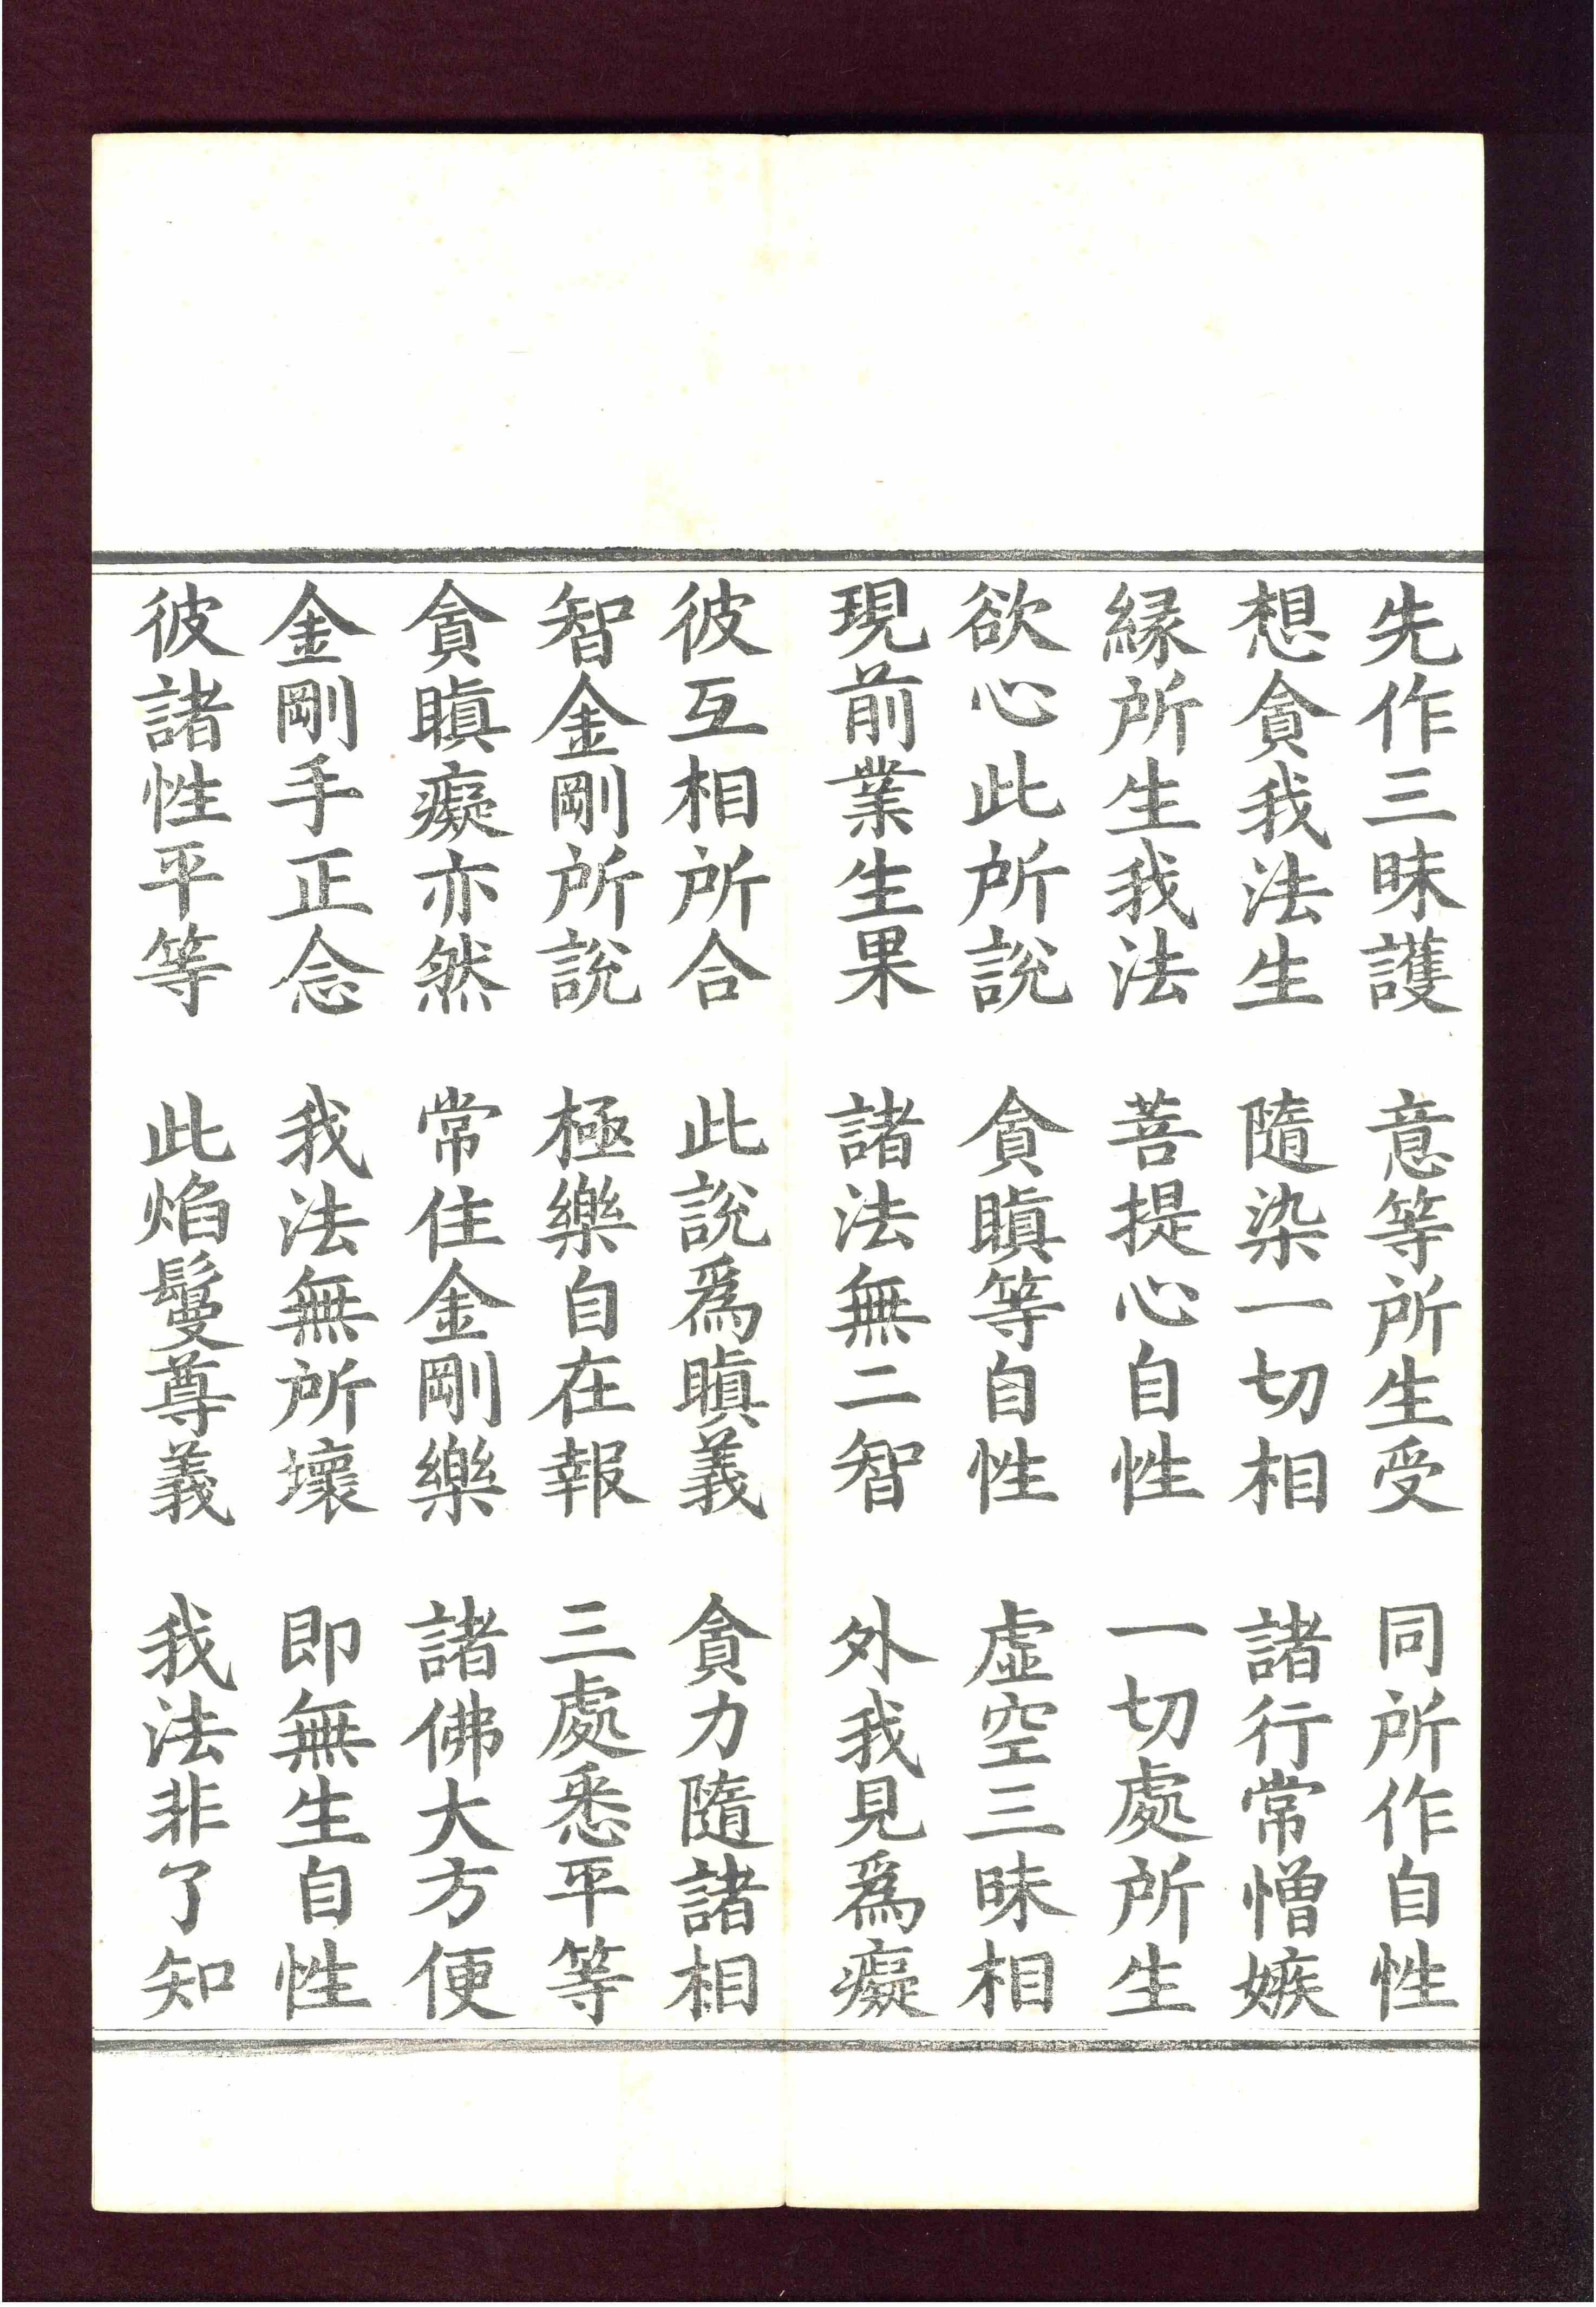 先作三昧護　意等所生受　同所作自性
想貪我法生　隨染一切相　諸行常憎嫉
緣所生我法　菩提心自性　一切處所生
欲心此所說　貪瞋等自性　虛空三昧相
現前業生果　諸法無二智　外我見爲癡
彼互相所合　此說爲瞋義　貪力隨諸相
智金剛所說　極樂自在報　三處悉平等
貪瞋癡亦然　常住金剛樂　諸佛大方便
金剛手正念　我法無所壞　即無生自性
彼諸性平等　此焰鬘尊義　我法非了知